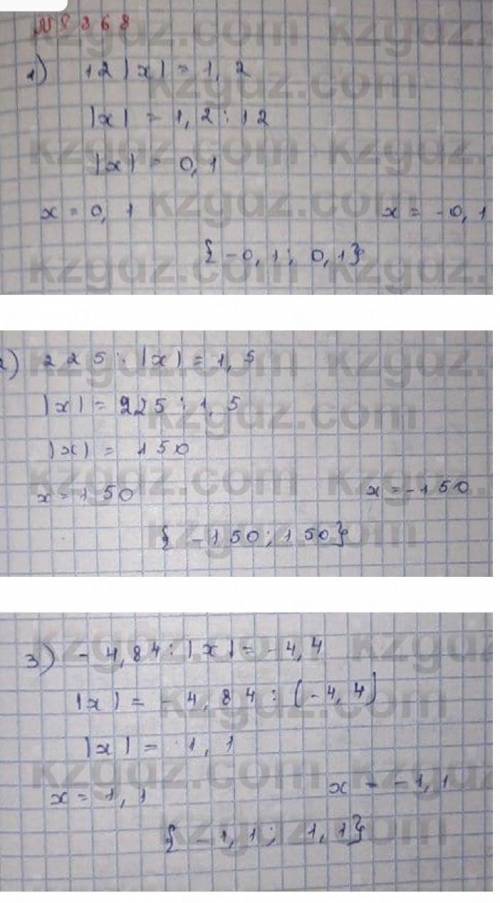 № 868
1) 12|x| = 1,2
|x| = 1,2 : 12
|x| = 0,1
x = 0,1 x = -0,1
{-0,1; 0,1}
2) 225 : |x| = 1,5
|x| = 225 : 1,5
|x| = 150
x = 150 x = -150
{-150; 150}
3) -4,84 : |x| = -4,4
|x| = -4,84 : (-4,4)
|x| = 1,1
x = 1,1 x = -1,1
{-1,1; 1,1}